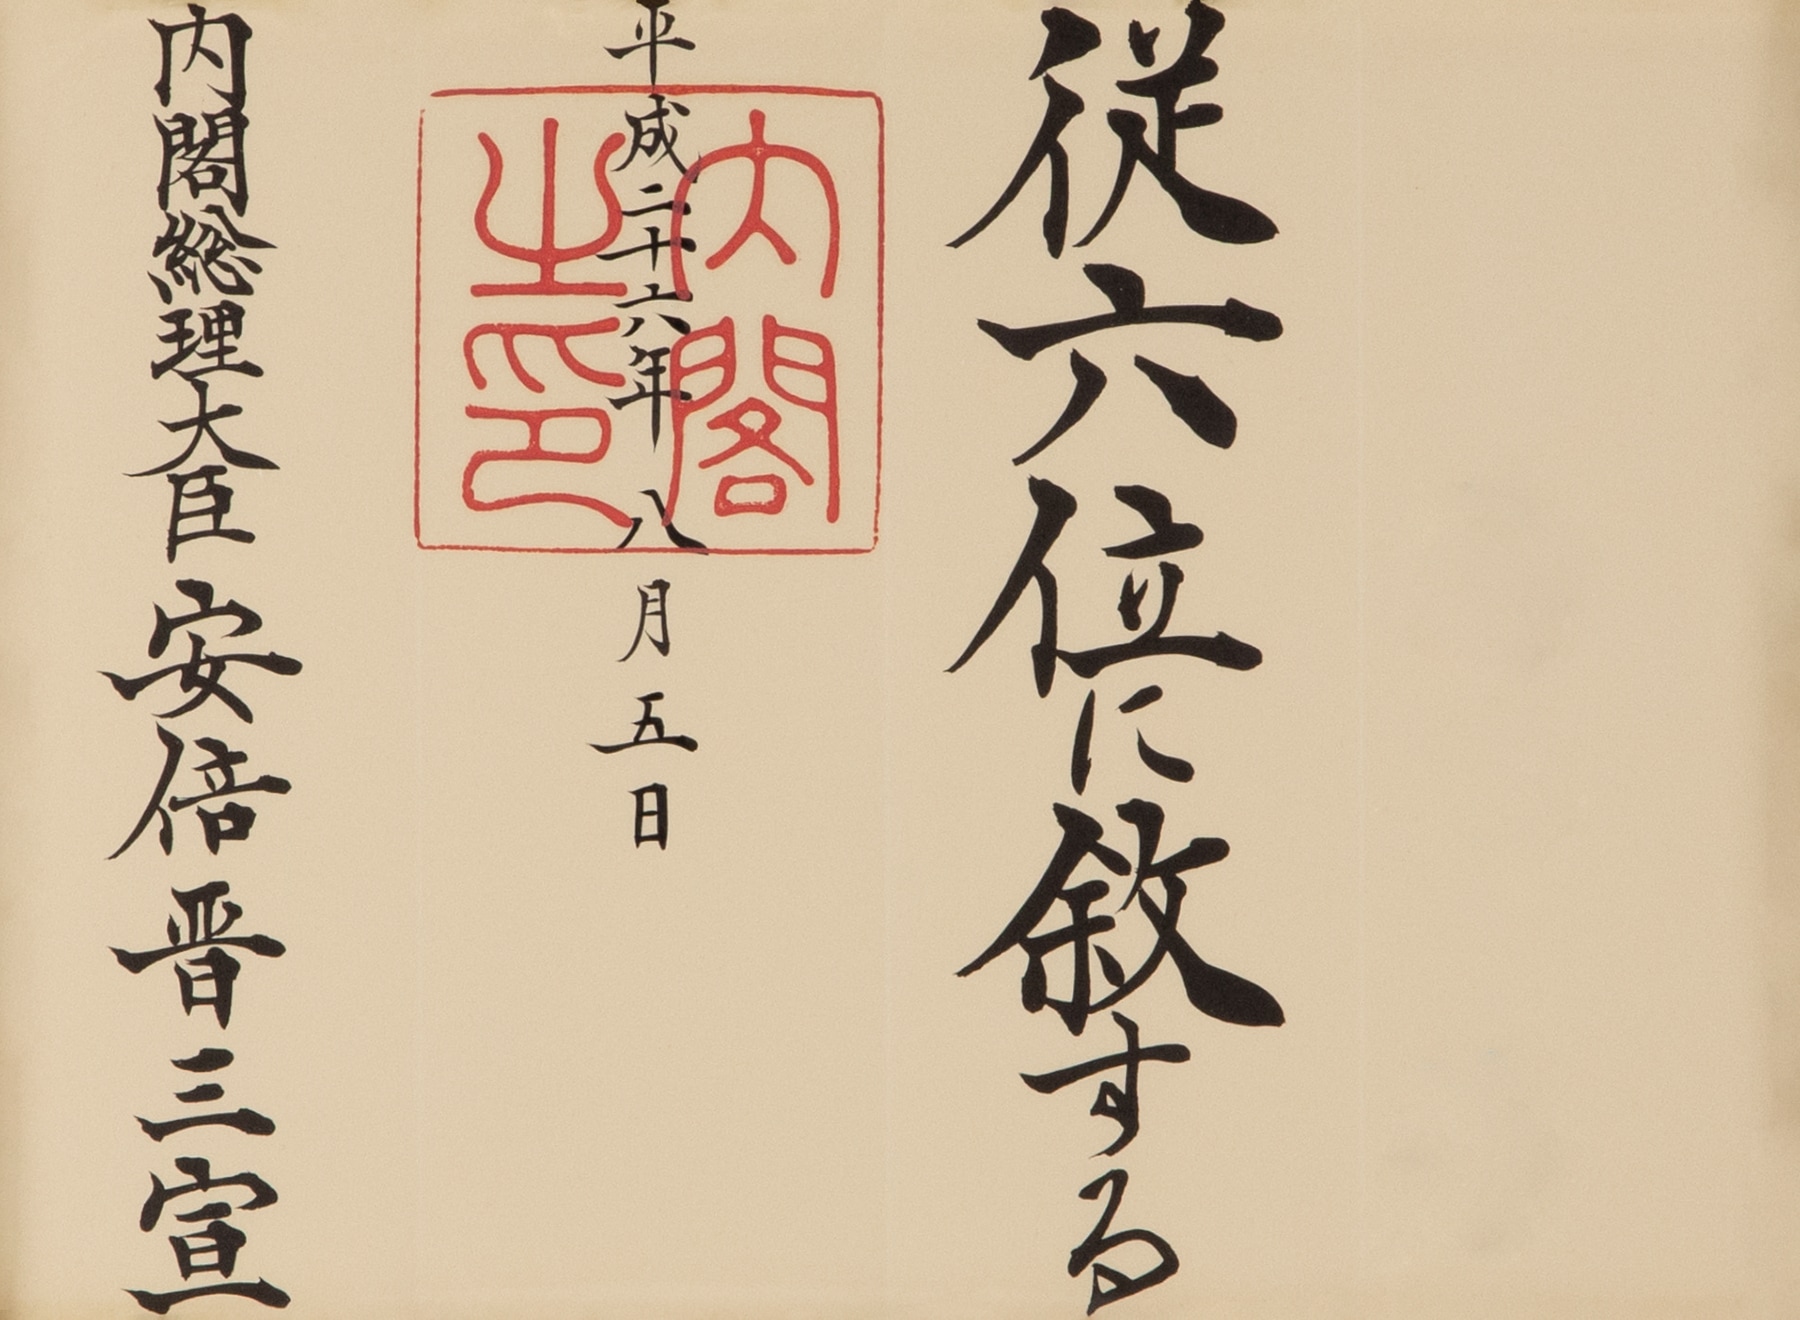 従六位に敘する
平成二十六年八月五日
内閣之印
内閣総理大臣安倍晋三宣